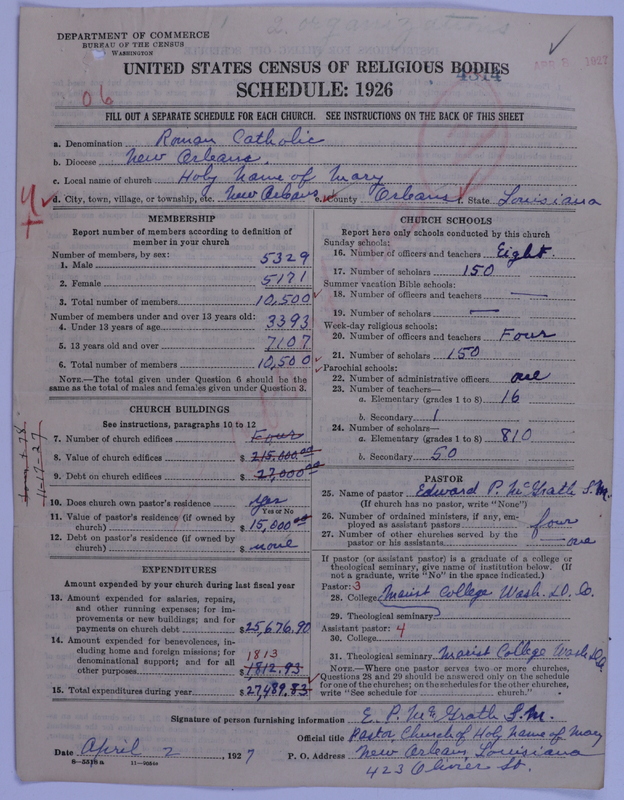 2. organizations
DEPARTMENT OF COMMERCE
BUREAU OF THE CENSUS
WASHINGTON
UNITED STATES CENSUS OF RELIGIOUS BODIES
4314
APR 8 1927
SCHEDULE: 1926
06
FILL OUT A SEPARATE SCHEDULE FOR EACH CHURCH. SEE INSTRUCTIONS ON THE BACK OF THIS SHEET
a. Denomination Roman Catholic
b. Diocese New Orleans.
c. Local name of church Holy Name of Mary
d. City, town, village, or township, etc. New Orleans e. County Orleans f. State Louisiana
4
MEMBERSHIP
Report number of members according to definition of
member in your church
Number of members, by sex:
1. Male 5329
2. Female 5171
3. Total number of members 10,500
Number of members under and over 13 years old:
4. Under 13 years of age 3393
5. 13 years old and over 7107
6. Total number of members 10,500
NOTE.—The total given under Question 6 should be the
same as the total of males and females given under Question 3.
CHURCH BUILDINGS
See instructions, paragraphs 10 to 12
7. Number of church edifices Four
8. Value of church edifices $ 215,000.00
9. Debt on church edifices $ 27,000.00
11-17-27
10. Does church own pastor's residence? Yes
Yes or No
11. Value of pastor's residence (if owned by
church) $ 15,000.00
12. Debt on pastor's residence (if owned by
church) $ none
EXPENDITURES
Amount expended by your church during last fiscal year
13. Amount expended for salaries, repairs,
and other running expenses; for im-
provements or new buildings; and for
payments on church debt $ 25,676.90
14. Amount expended for benevolences, in-
cluding home and foreign missions; for
denominational support; and for all
1813
other purposes $ 1812.93
15. Total expenditures during year $ 27,489.83
CHURCH SCHOOLS
Report here only schools conducted by this church
Sunday schools:
16. Number of officers and teachers Eight.
17. Number of scholars 150
Summer vacation Bible schools:
18. Number of officers and teachers —
19. Number of scholars —
Week-day religious schools:
20. Number of officers and teachers Four
21. Number of scholars 150
Parochial schools:
22. Number of administrative officers one
23. Number of teachers—
a. Elementary (grades 1 to 8) 16
b. Secondary 1
24. Number of scholars—
a. Elementary (grades 1 to 8) 810
b. Secondary 50
PASTOR
25. Name of pastor Edward P. McGrath S.M.
(If church has no pastor, write "None")
26. Number of ordained ministers, if any, em-
ployed as assistant pastors four
27. Number of other churches served by the
pastor or his assistants — one
If pastor (or assistant pastor) is a graduate of a college or
theological seminary, give name of institution below. (If
not a graduate, write "No" in the space indicated.)
Pastor: 3
28. College Marist College Wash. D. C.
29. Theological seminary
Assistant pastor: 4
30. College
31. Theological seminary Marist College Wash D.C.
NOTE.—Where one pastor serves two or more churches,
Questions 28 and 29 should be answered only on the schedule
for one of the churches; on the schedules for the other churches,
write "See schedule for church."
Signature of person furnishing information E. P. McGrath S.M.
Official title Pastor, Church of Holy Name of Mary
Date April 2, 1927 P. O. Address New Orleans, Louisiana
8-5518a 423 Olivier St.